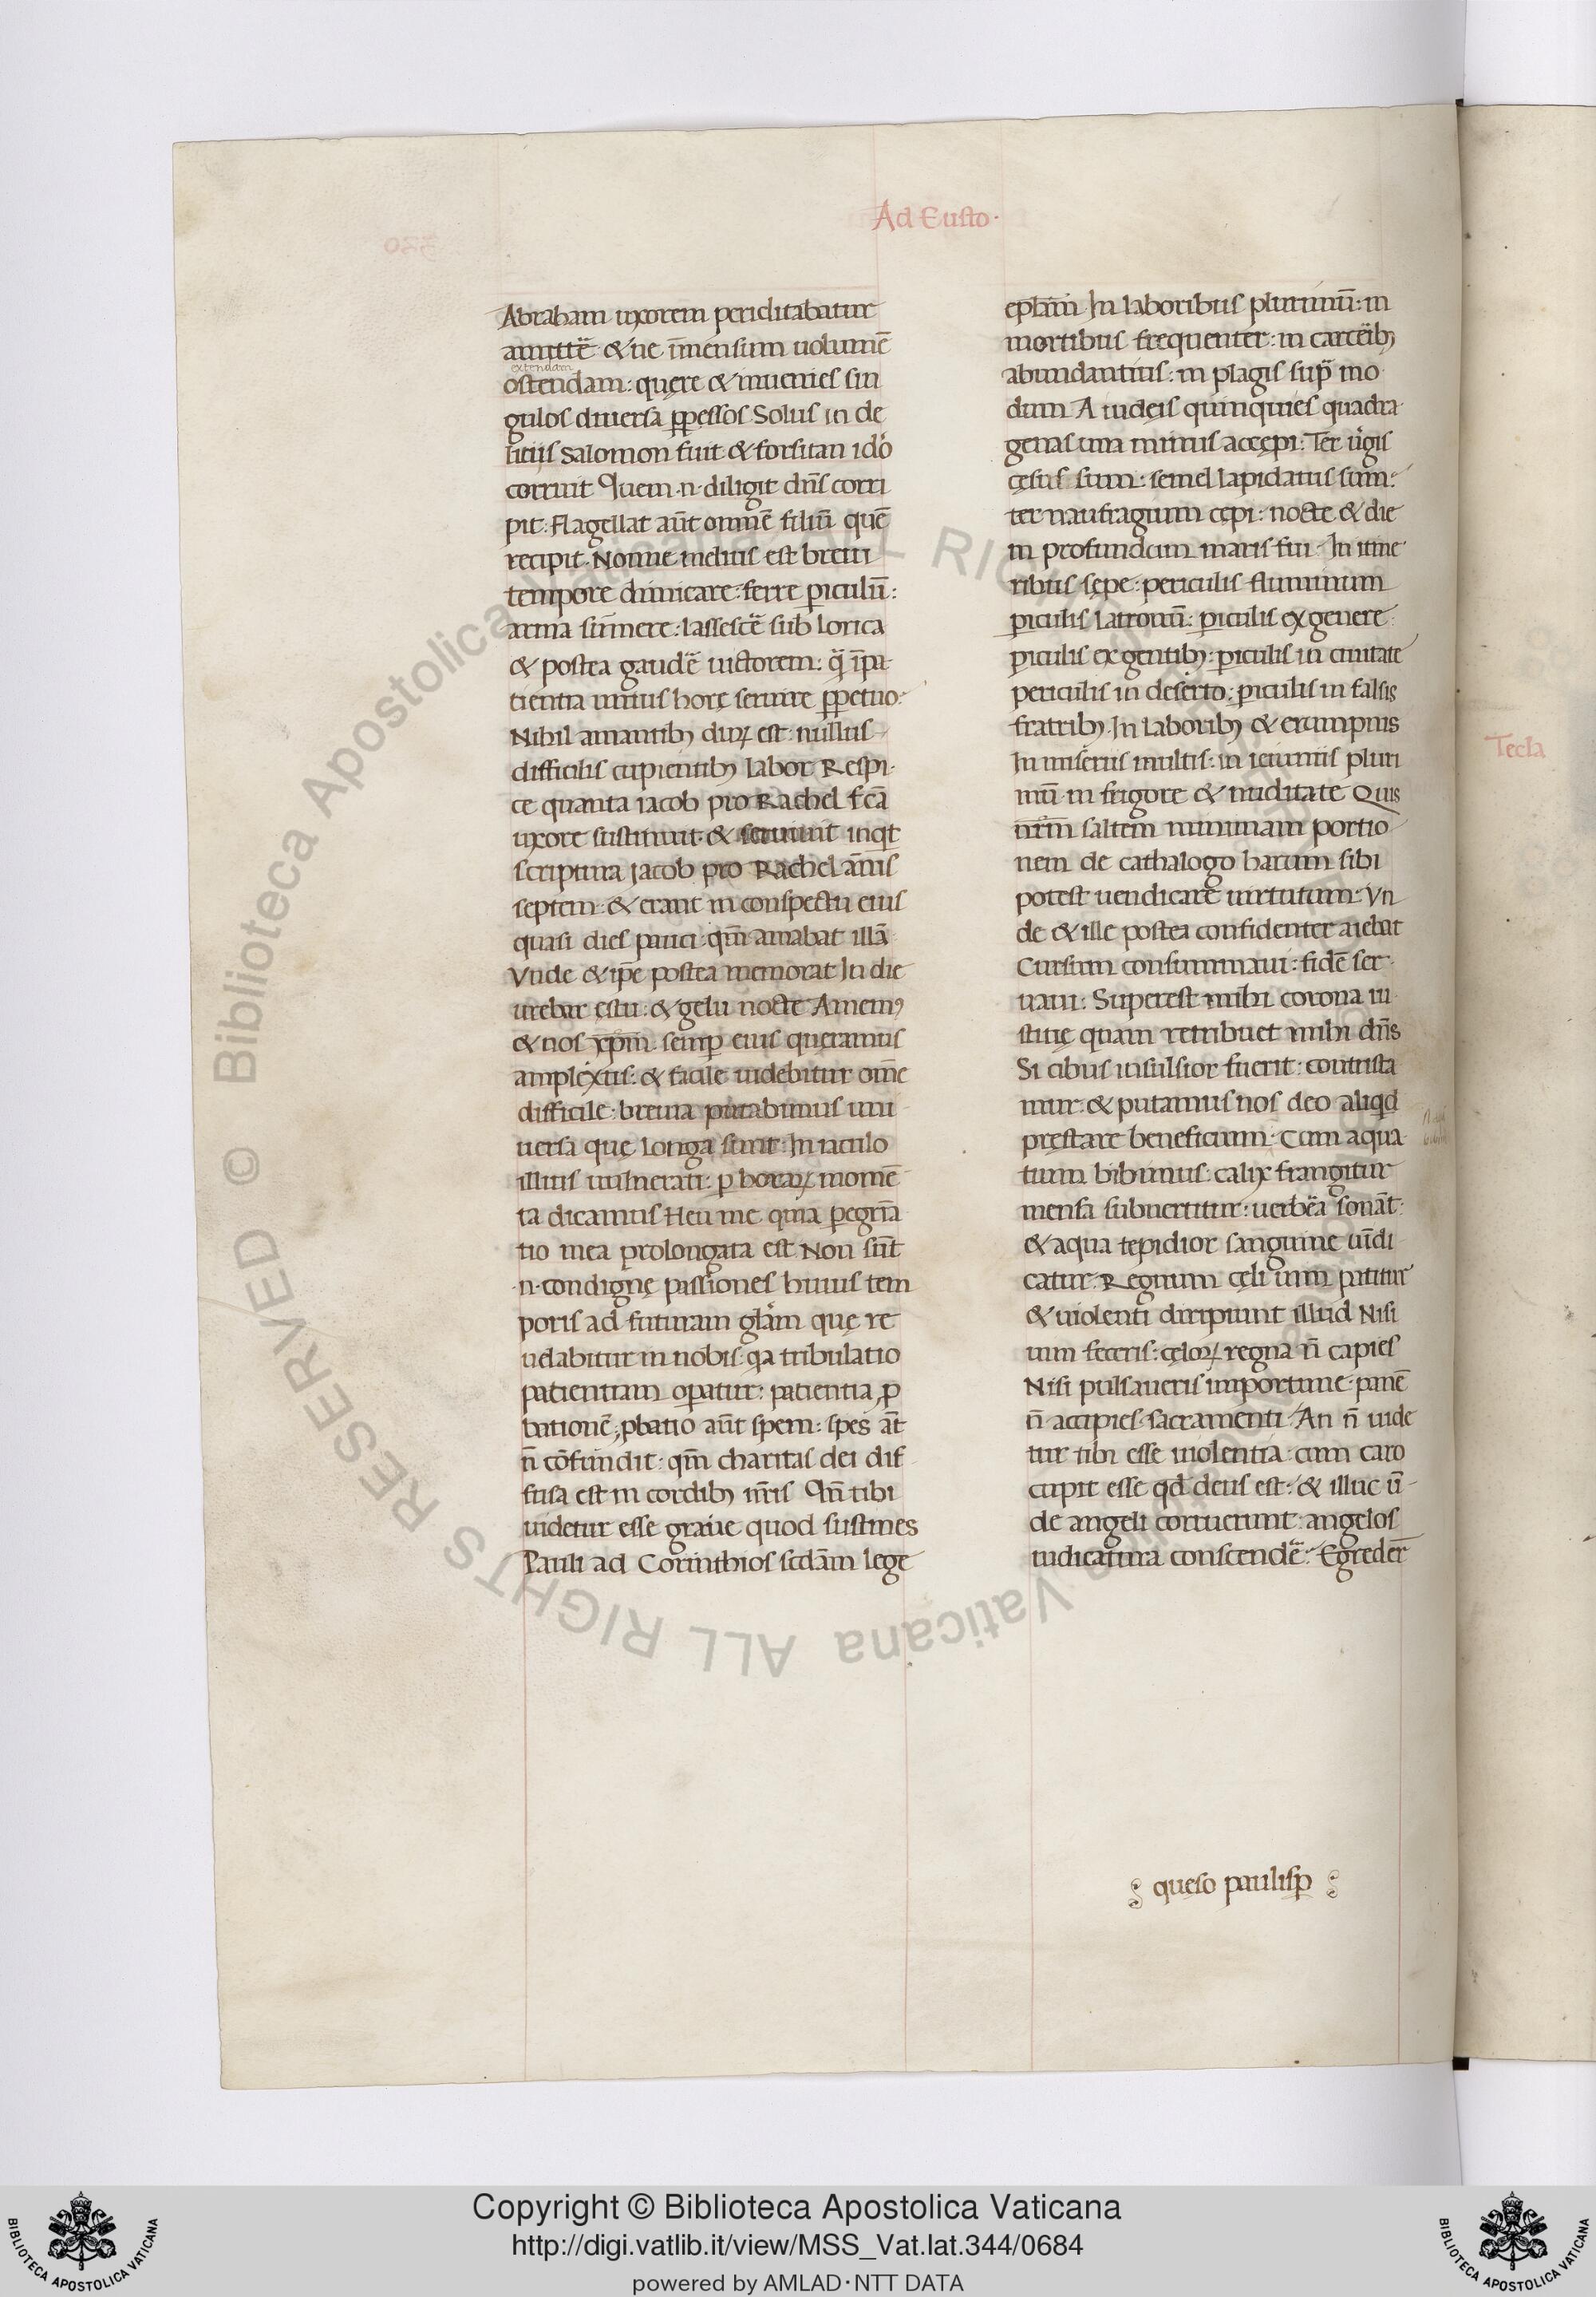 Ad Eusto·
Abraham uxorem periclitabatur
amittẽ & ne ĩmensum uolumẽ
extendam
ostendam: quęre & inuenies sin
gulos diuersa ꝑpessos Solus in de
litiis Salomon fuit & forsitan idõ
corruit Quem ·n· diligit dñs corri
pit: Flagellat aũt omnẽ filiũ quẽ
recipit· Nonne melius est breui
tempore dimicare: ferre ꝑiculũ:
arma sumere: lassescẽ sub lorica
& postea gaudẽ uictorem: q̃ ĩpa
tientia unius horę seruire ꝑpetuo:
Nihil amantibꝫ duꝝ est: nullus
difficilis cupientibꝫ labor Respi
ce quanta iacob pro Rachel ꝑcã
uxore sustinuit· & seruiuit inqt
scriptura Jacob pro Rachel annis
septem: & erant in conspectu eius
quasi dies pauci: qm̃ amabat illã
Vnde & ip̃e postea memorat In die
urebar estu: & gelu nocte Amemꝰ
& nos xp̃m semꝑ eius queramus
amplexus: & facile uidebitur om̃e
difficile: breuia putabimus uni
uersa quę longa sunt: In iaculo
illius uulnerati: ꝑ horaꝝ momẽ
ta dicamus Heu me quia ꝑegrĩa
tio mea prolongata est Non sũt
·n· condignę passiones huius tem
poris ad futuram glãm quę re
uelabitur in nobis: qa tribulatio
patientiam oꝑatur: patientia ꝓ
bationẽ; ꝓbatio aũt spem: spes aũt
ñ cõfundit: qm̃ charitas dei dif
fusa est in cordibꝫ nr̃is Qm̃ tibi
uidetur esse graue quod sustines
Pauli ad Corinthios scdãm lege
eplãm In laboribus plurimũ: in
mortibus frequenter: in carcẽibꝫ
abundantius: in plagis supᷓ mo
dum A iudęis quinquies quadra
genas una minus accępi: Ter uĩgis
cęsus sum: semel lapidatus sum:
ter naufragium cępi: nocte & die
in profundum maris fui· In itine
ribus sępe: periculis fluminum
ꝑiculis latronũ: ꝑiculis ex genere
ꝑiculis ex gentibꝫ: ꝑiculis in ciuitate
periculis in deserto: ꝑiculis in falsis
fratribꝫ In laboribꝫ & erumpnis
In miseriis multis: in ieiuniis pluri
mũ in frigore & nuditate Quis
nr̃m saltem minimam portio
nem de cathalogo harum sibi
potest uendicare uirtutum Vn
de & ille postea confidenter aiebat
Cursum consummaui: fidẽ ser
uaui: Superest mihi corona iu
stitię quam retribuet mihi dñs
Si cibus insulsior fuerit: contrista
mur: & putamus nos deo aliqd
pręstare beneficium: Cum aqua
tum bibimus: calix frangitur
mensa subuertitur: uerbẽa sonãt:
& aqua tepidior sanguine uĩdi
catur: Regnum cęli uim patitur
& uiolenti diripiunt illud Nisi
uim feceris: cęloꝝ regna ñ capies
Nisi pulsaueris importune panẽ
ñ accipies sacramenti· An ñ uide
tur tibi esse uiolentia: cum caro
cupit esse qd̃ deus est: & illuc ũ
de angeli corruerunt angelos
iudicatura conscendẽ: Egredẽr
queso paulisꝑ
Tecla
Copyright © Biblioteca Apostolica Vaticana
http://digi.vatlib.it/view/MSS_Vat.lat.344/0684
powered by AMLAD·NTT DATA
BIBLIOTECA APOSTOLICA VATICANA
BIBLIOTECA APOSTOLICA VATICANA
© Biblioteca Apostolica Vaticana ALL RIGHTS RESERVED